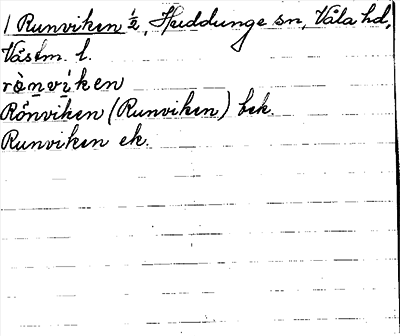 1 Runviken 1/2, Huddunge sn, Våla hd,
Västm. l.
rὼnvìken
Rönviken (Runviken) bek.
Runviken ek.